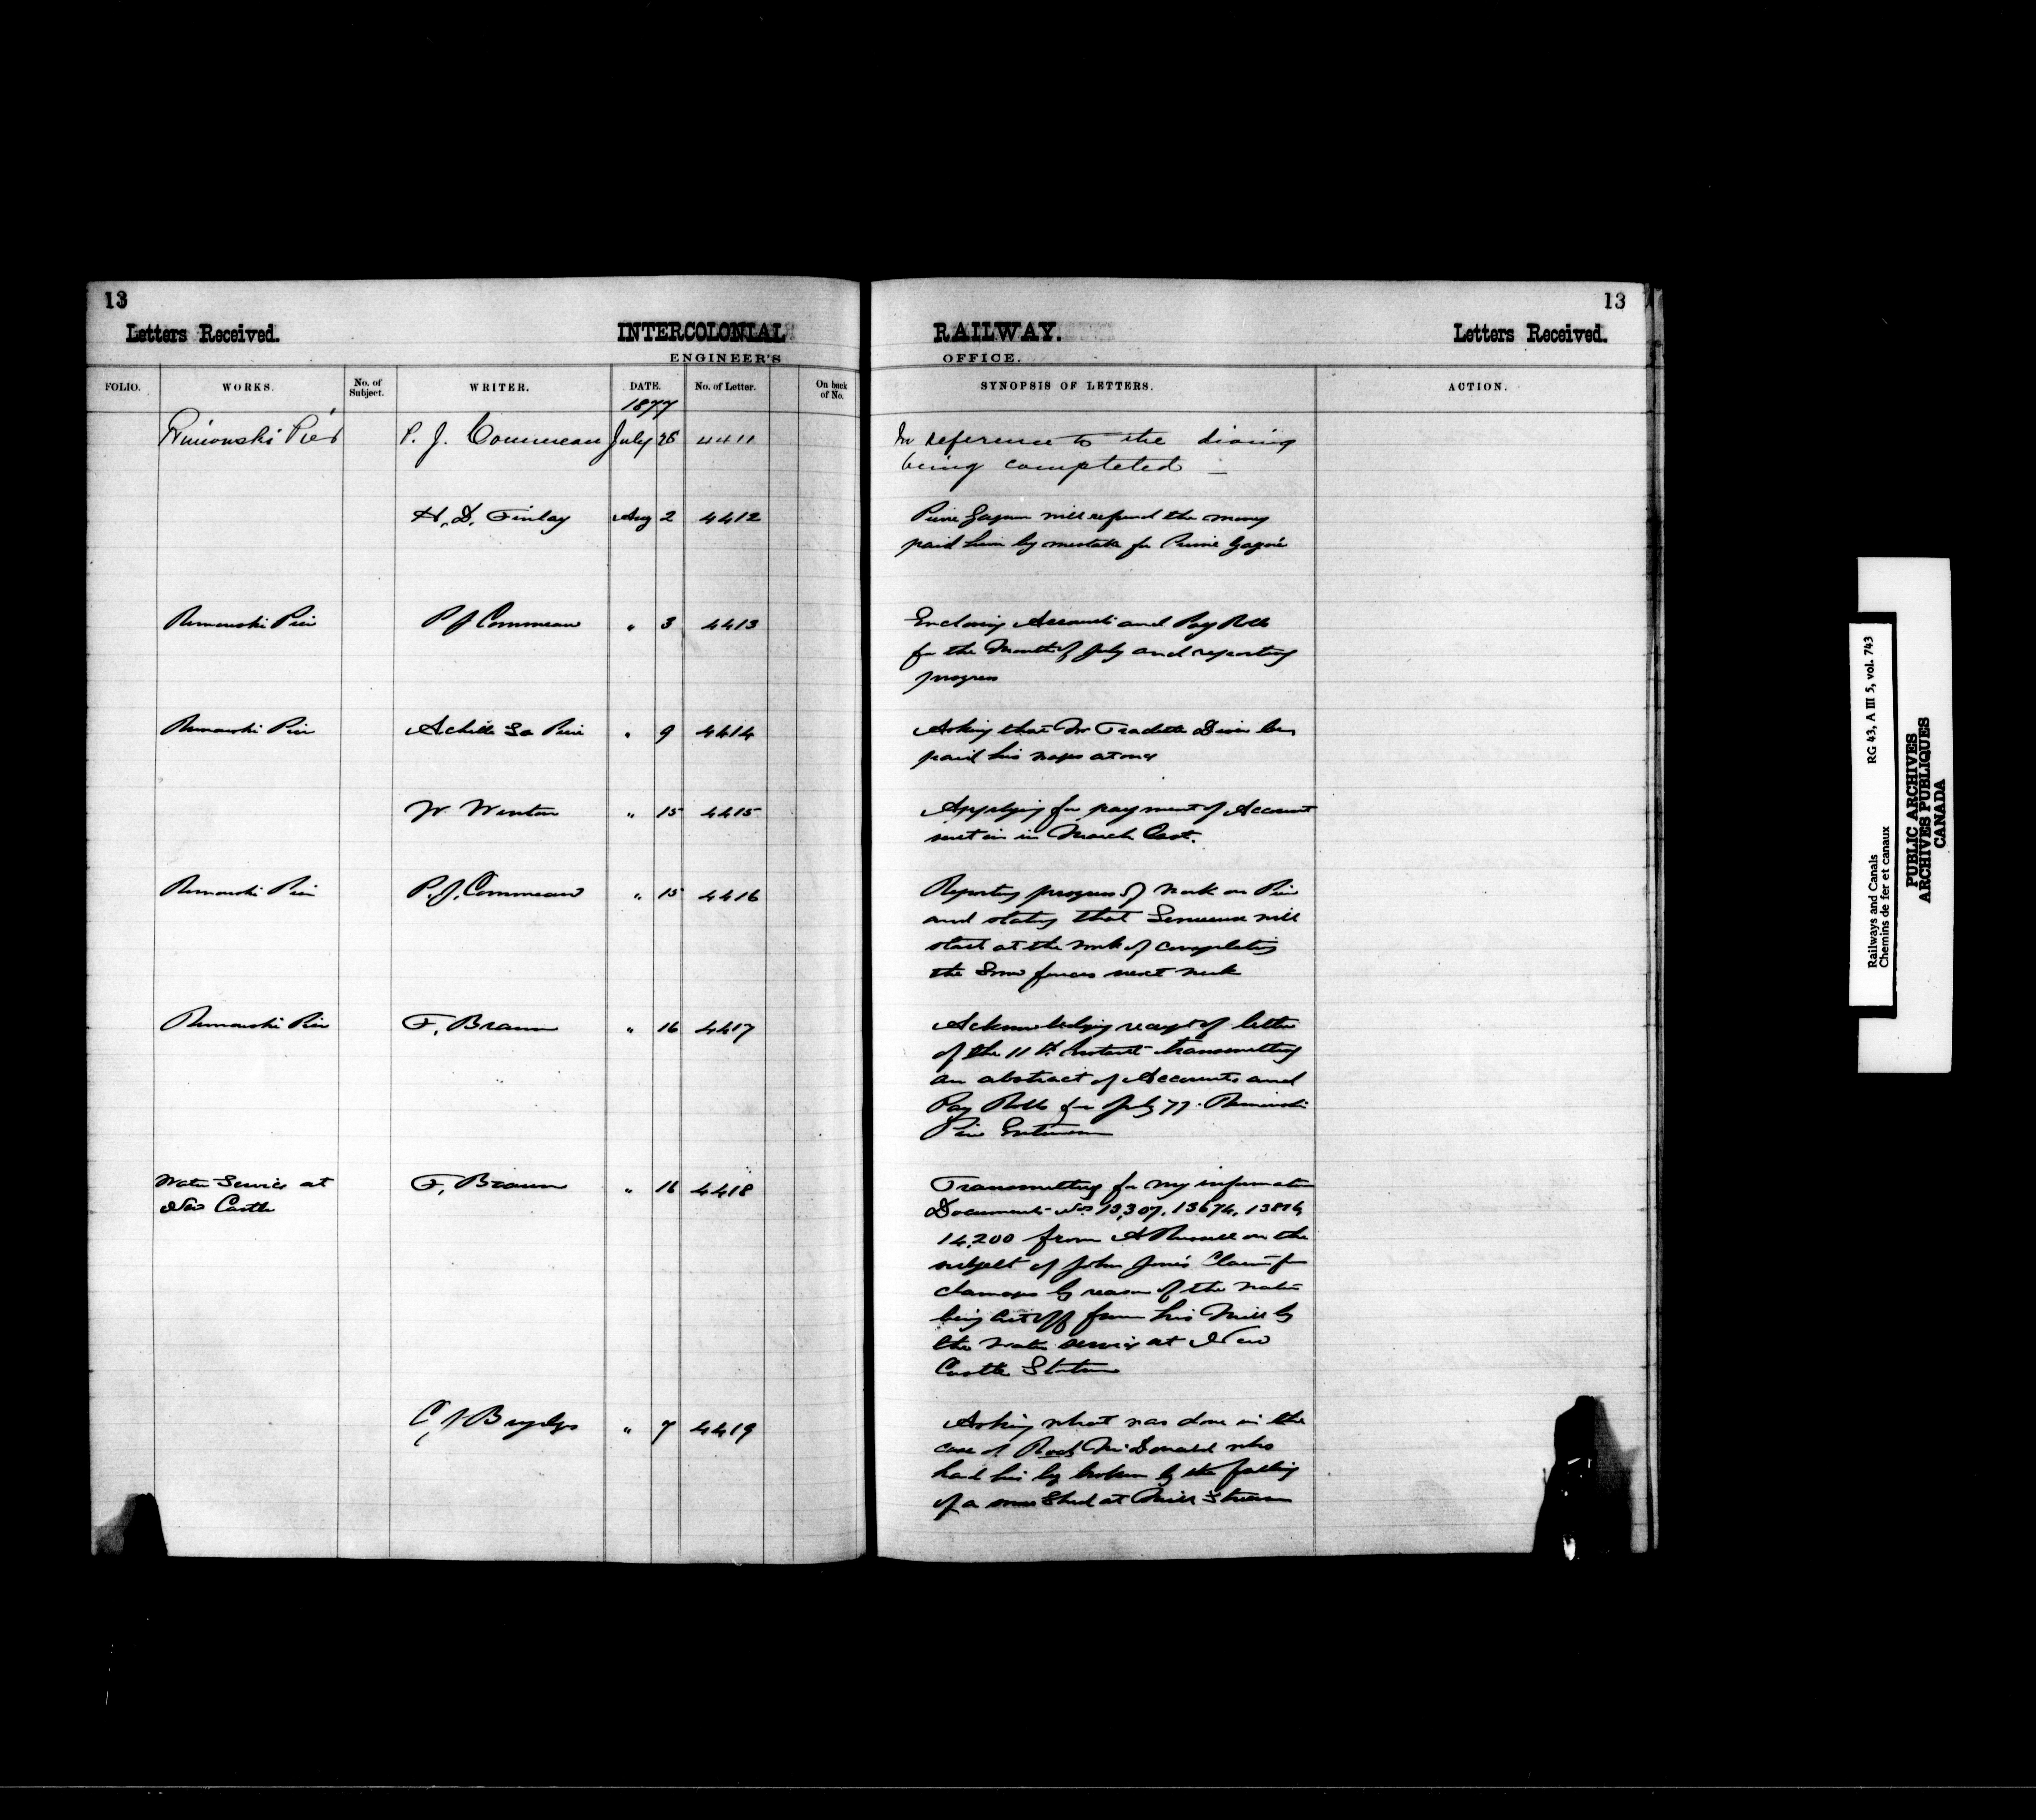 13
13
Letters Received.
INTERCOLONIAL
RAILWAY.
Letters Received.
ENGINEER'S
OFFICE.
FOLIO.
WORKS.
No. of Subject.
WRITER.
DATE.
No. of Letter.
On back of No.
SYNOPSIS OF LETTERS.
ACTION.
1877
Rimouski Pier P. J. Commeau July 26 4411 In reference to the diving
being completed —
H. D. Finlay Aug 2 4412 Pierre Gagnon will refund the money
paid him by mistake for Pierre Gagné
Rimouski Pier P J Commeau " 3 4413 Enclosing Accounts and Pay Rolls
for the Month of July and reporting
progress
Rimouski Pier Achille La Pierre " 9 4414 Asking that Mr Diver be
paid his wages at once
W Winton " 15 4415 Applying for payment of Account
sent in in March last.
Rimouski Pier P. J. Commeau " 15 4416 Reporting progress of work on Pier
and stating that will
start at the work of completing
the Snow fences next week
Rimouski Pier F. Braun " 16 4417 Acknowledging receipt of letter
of the 11th Instant transmitting
an abstract of Accounts and
Pay Rolls for July 77. Rimouski
Pier Extension
Water Service at F. Braun " 16 4418 Transmitting for my information
New Castle
Documents Nos 13,307, 13674,
14,200 from A Russell on the
subject of John Jones Claim for
damages by reason of the water
being cut off from his Mill by
the water service at New
Castle Station
C J Brydges " 7 4419 Asking what was done in the
case of McDonald who
had his leg broken by the falling
of a snow Shed at Mill Stream
Railways and Canals RG 43, A III 5, vol. 743
Chemins de fer et canaux
PUBLIC ARCHIVES
ARCHIVES PUBLIQUES
CANADA